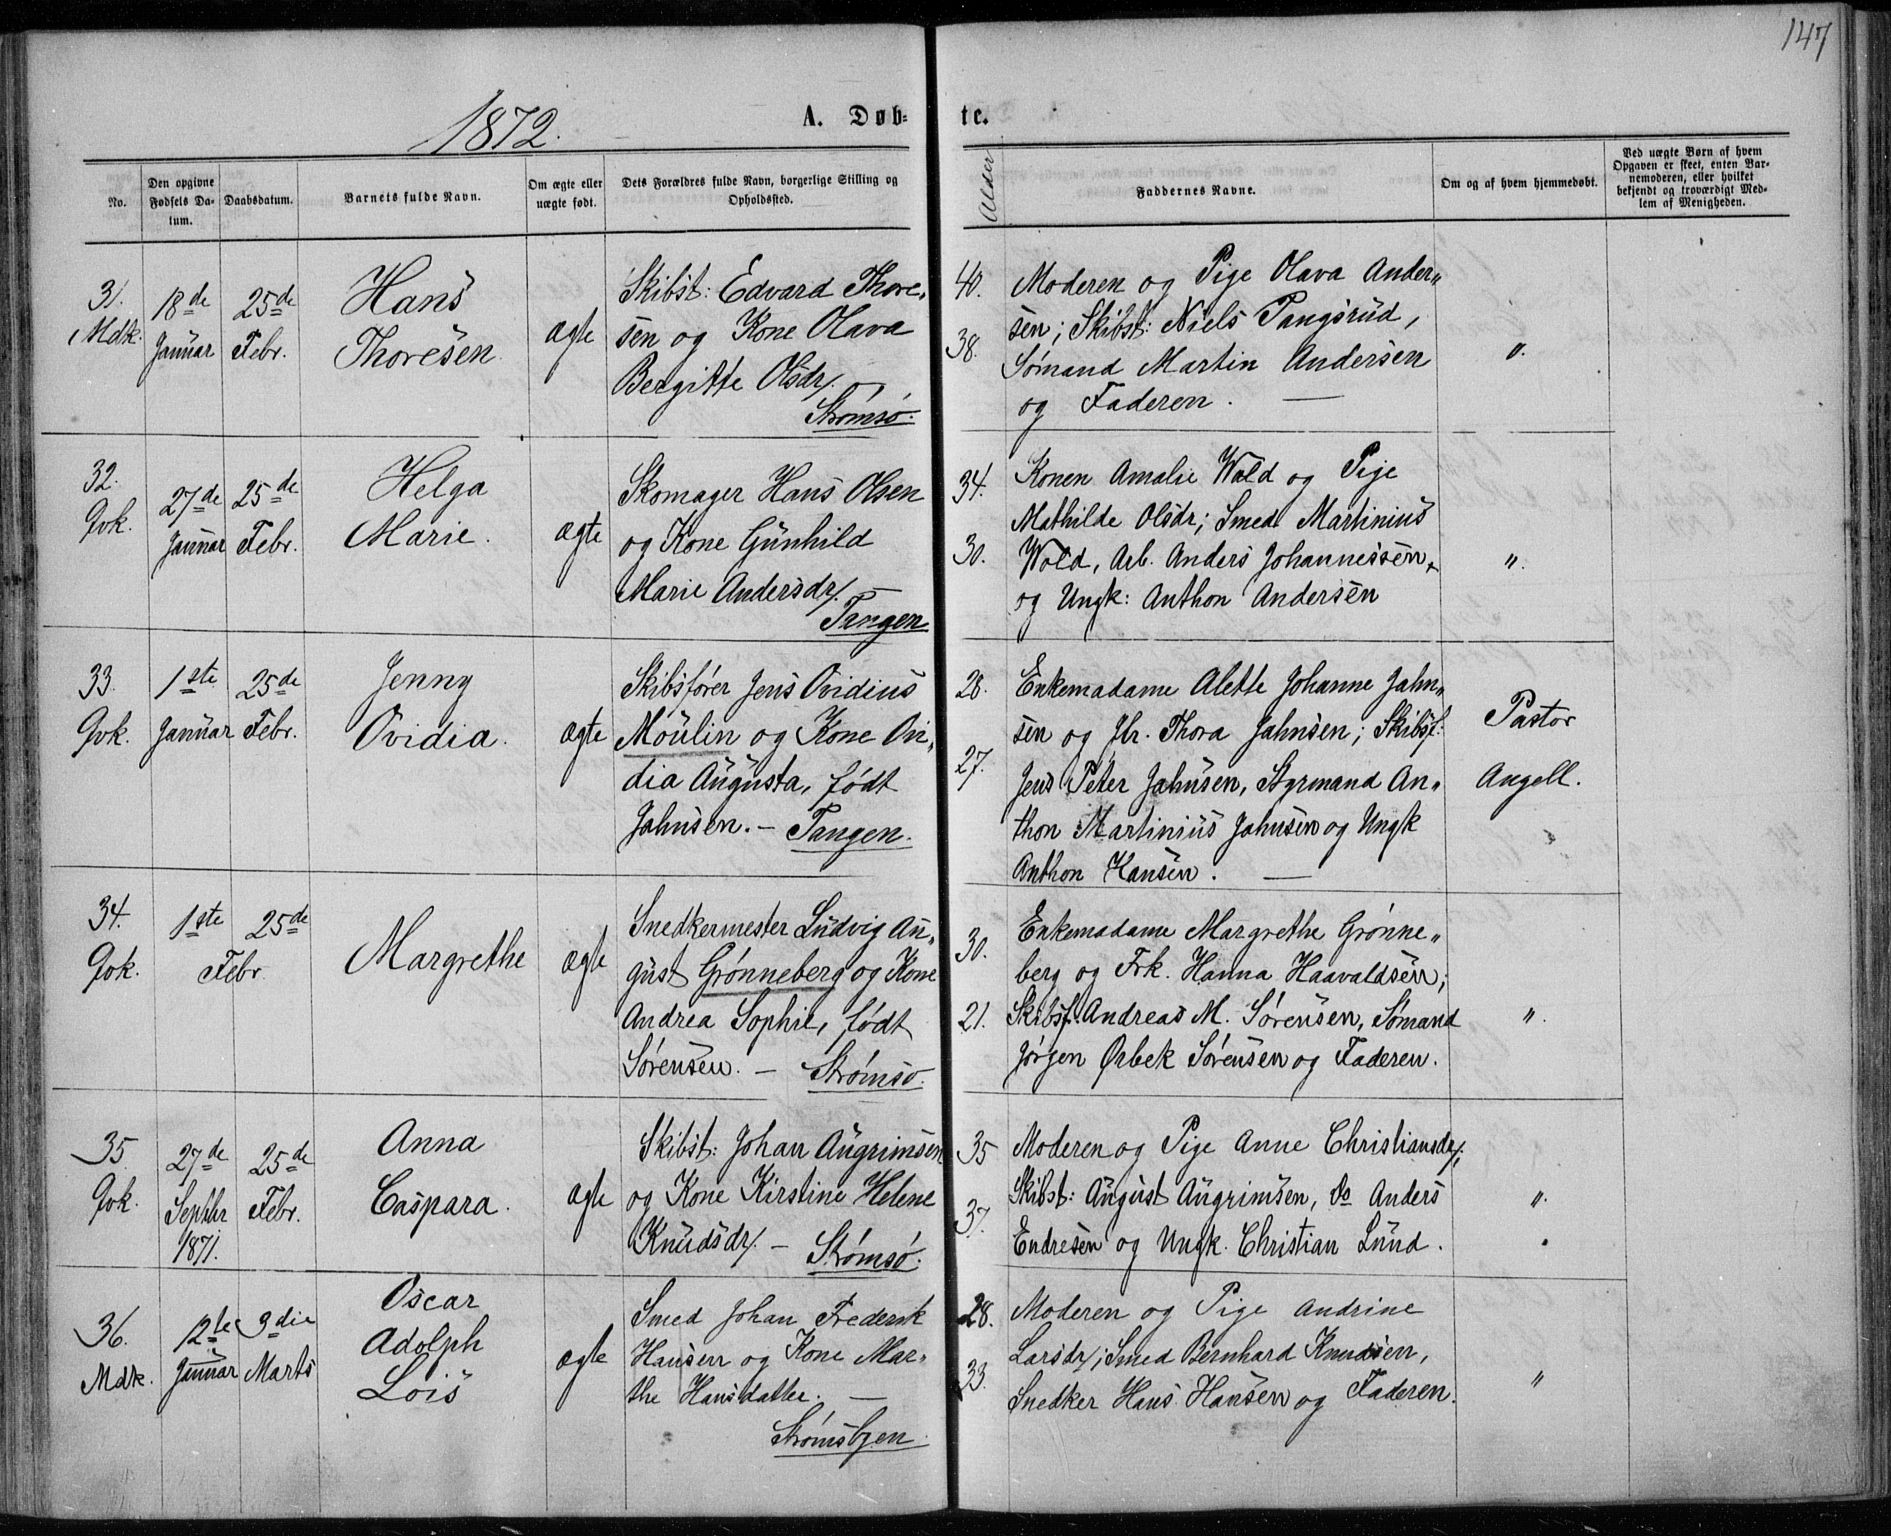 147
1872.
A. Døb-
te.
No.
Den opgivne
Fødsels Da-
tum.
Daabsdatum.
Barnets fulde Navn.
Om ægte eller
uægte født.
Dets Forældres fulde Navn, borgerlige Stilling og
Opholdssted.
Alder
Faddernes Navne.
Om og af hvem hjemmedøbt.
Ved uægte Børn af hvem
Opgaven er skeet, enten Bar-
nemoderen, eller hvilket
bekjendt og troværdigt Med-
lem af Menigheden.
31.
Mdk.
18de
Januar
25de
Febr.
Hans
Thoresen
ægte
Skibst: Edvard Thore-
sen og Kone Olava
Bergitte Olsdr.
Strømsø.
40.
38.
Moderen og Pige Olava Ander„
sen; Skibst: Niels Pangsrud,
Sømand Martin Andersen
og Faderen. —
„.
32.
Qvk.
27de
Januar
25de
Febr.
Helga
Marie.
ægte
Skomager Hans Olsen
og Kone Gunhild
Marie Andersdr. —
Tangen
34.
30.
Konen Amalie Wold og Pige
Mathilde Olsdr; Smed Martinius
Wold, Arb. Anders Johannessen,
og Ungk: Anthon Andersen
„.
33.
Qvk.
1ste
Januar
25de
Febr.
Jenny
Ovidia.
ægte
Skibsfører Jens Ovidius
Moulin og Kone Ovi„
dia Augusta, født
Jahnsen. — Tangen.
28.
27.
Enkemadame Alette Johanne Jahn„
sen og Jfr. Thora Jahnsen; Skibsf:
Jens Peter Jahnsen, Styrmand An„
thon Martinius Jahnsen og Ungk
Anthon Hansen. —
Pastor
Angell.
34.
Qvk.
1ste
25de
Febr.
Margrethe
ægte
Snedkermester Ludvig Au„
gust Grønneberg og Kone
Andrea Sophie, født
Sørensen. — Strømsø.
30.
21.
Enkemadame Margrethe Grønne„
berg og Frk. Hanna Haavaldsen;
Skibsf. Andreas M. Sørensen, Sømand
Jørgen Ørbek Sørensen og Faderen.
„.
35.
Qvk.
27de
Septbr
1871.
25de
Febr.
Anna
Caspara.
ægte
Skibst: Johan Augrimsen
og Kone Kirstine Helene
Knudsdr. — Strømsø.
35
37.
Moderen og Pige Anne Christiansdr.;
Skibst: August Augrimsen, do Anders
Endresen og Ungk. Christian Lund.
„.
36.
Mdk.
12te
Januar
3die
Marts
Oscar
Adolph
Lois
ægte
Smed Johan Frederik
Hansen og Kone Mar-
the Hansdatter. —
Strømsbyen.
28.
33.
Moderen og Pige Andrine
Larsdr.; Smed Bernhard Knudsen,
Snedker Hans Hansen og Faderen.
„